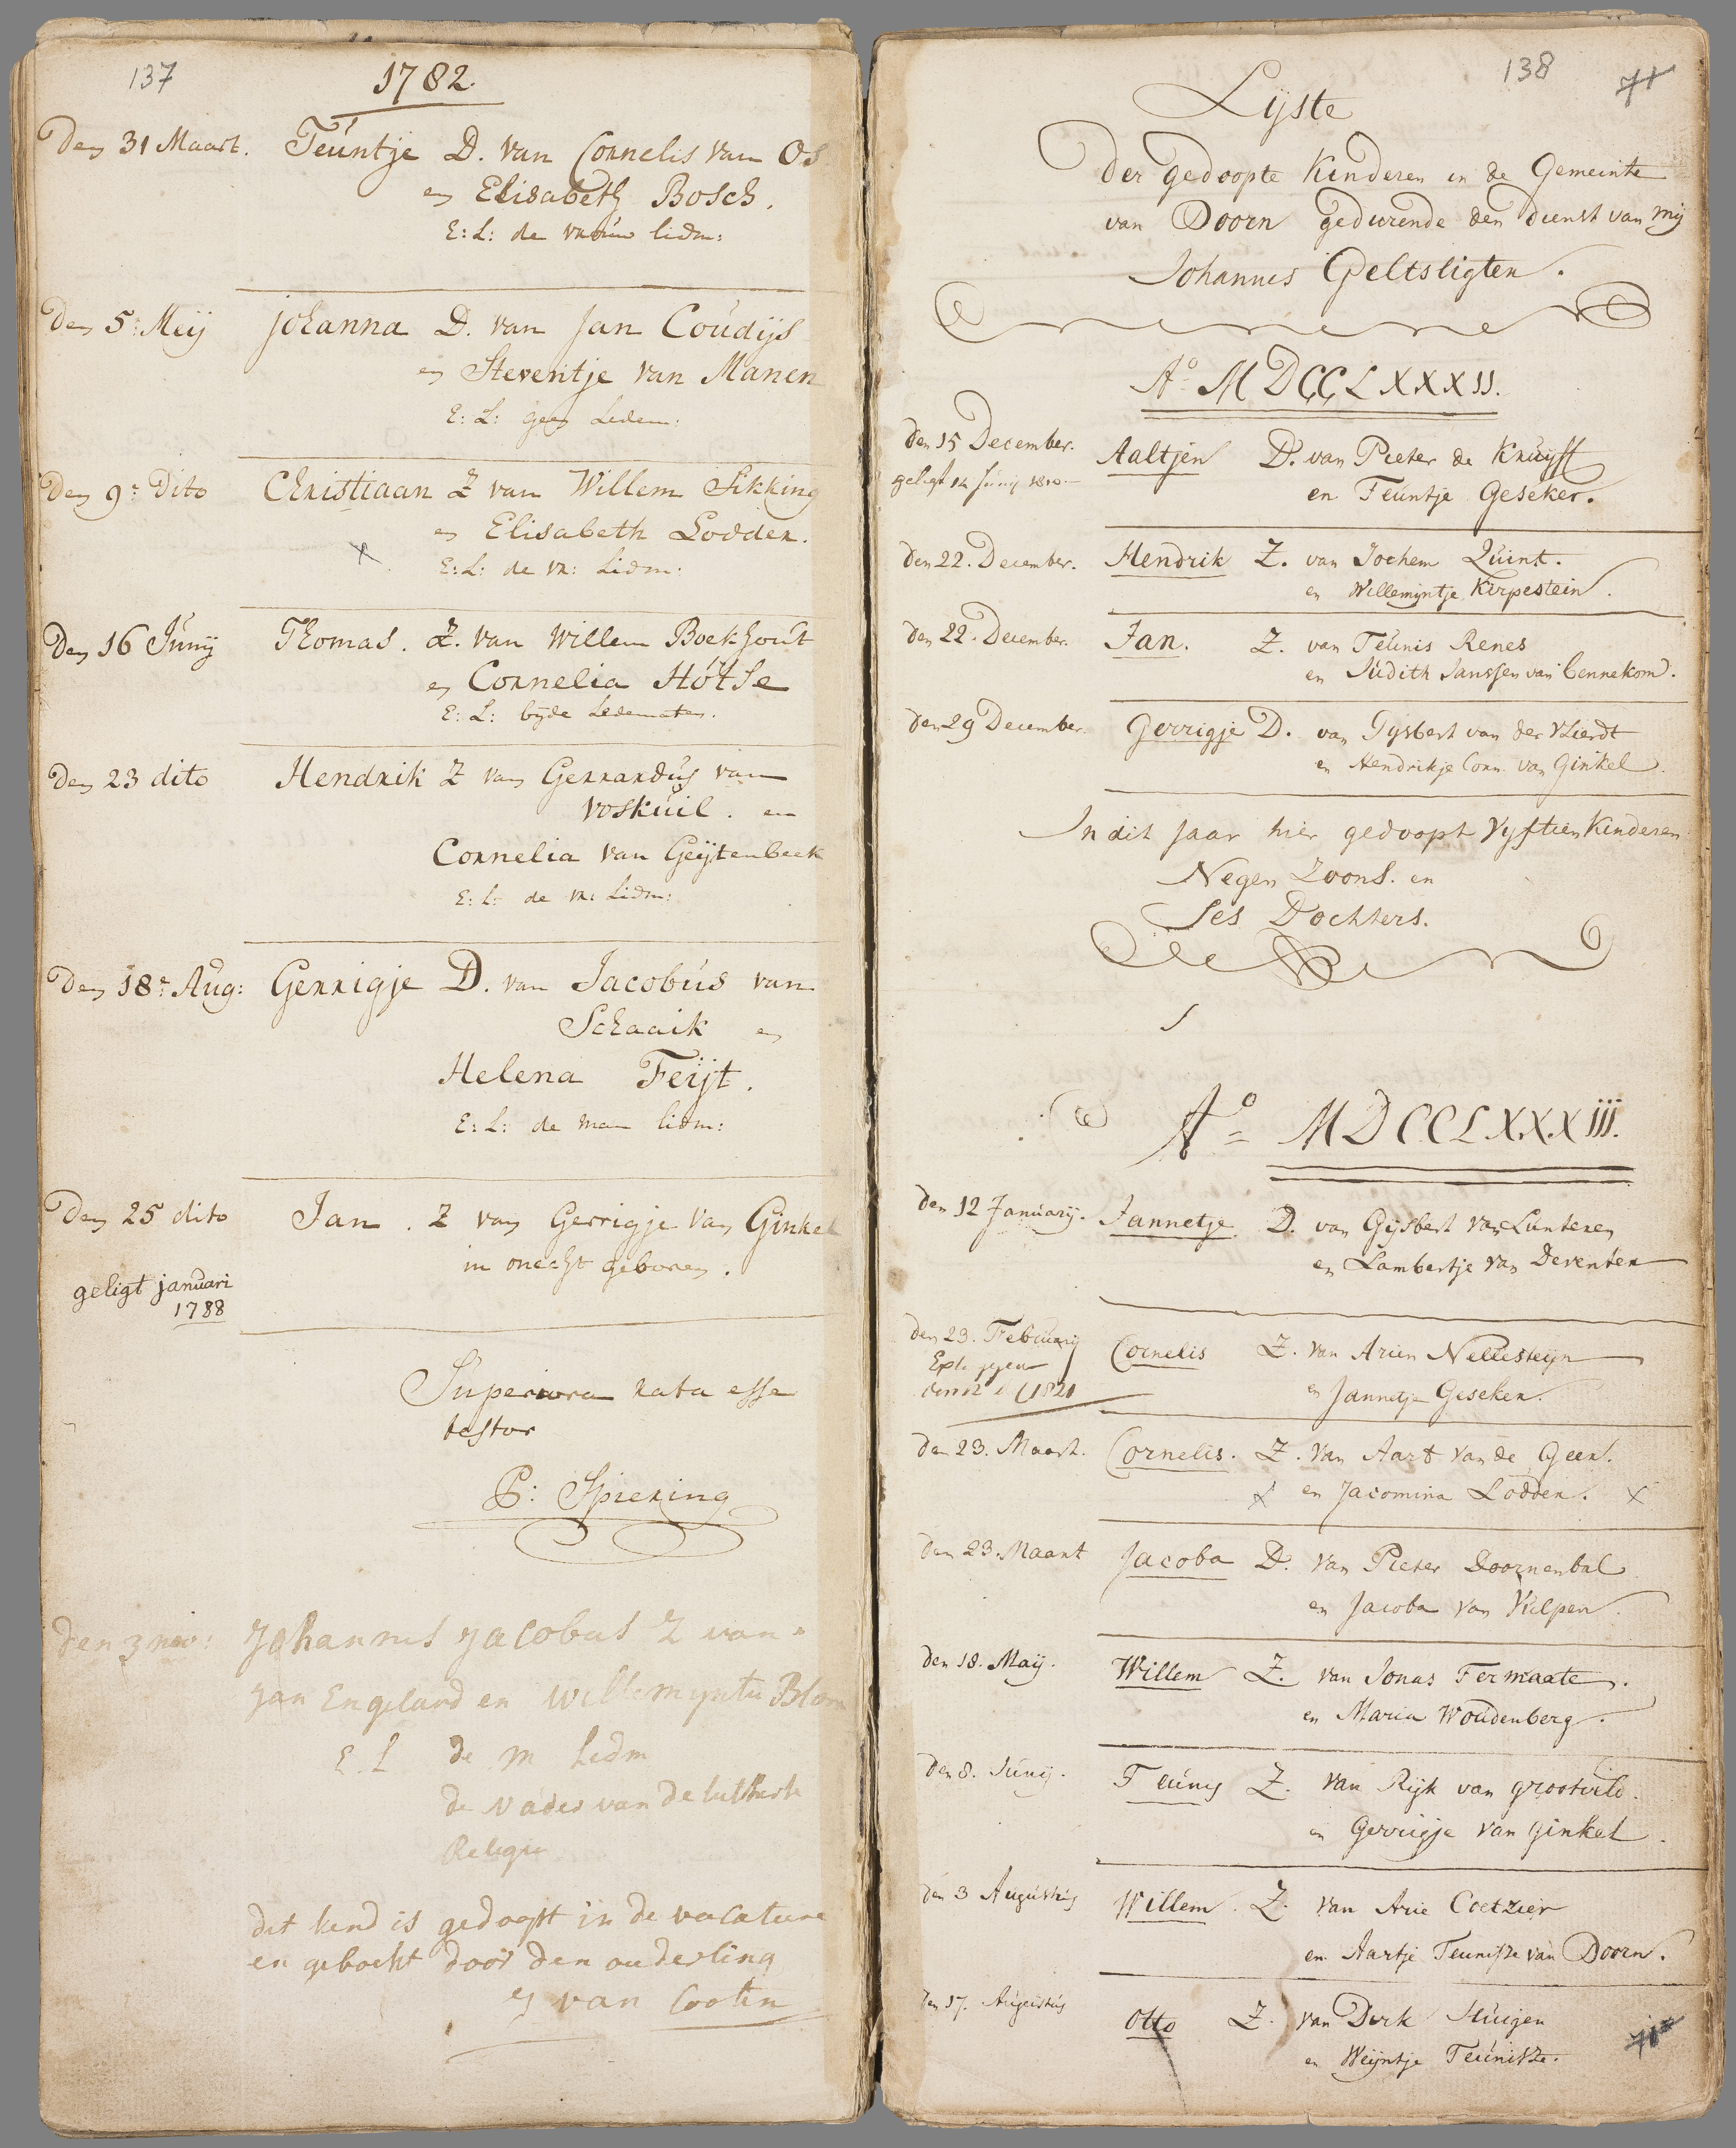 137
1782.
Den 31 Maart. Teuntje D. van Cornelis van Os
en Elisabeth Bosch.
E: L: de vrouw lidm:
Den 5: Meij Johanna D. van Jan Coudijs
en Steventje van Manen
E: L: geen Ledem:
Den 9: Dito Christiaan Z van Willem Sikking
en Elisabeth Lodder.
x E: L: de vr: Lidm:
Den 16 Junij Thomas. Z. van Willem Boekhout
en Cornelia Hótse
E: L: byde Ledematen.
Den 23 dito Hendrik Z van Gerrardus van
Voskuil. en
Cornelia van Geijtenbeek
E: L: de vr: Lidm:
Den 18: Aug: Gerrigje D. van Jacobus van
Schaaik en
Helena Feijt.
E: L: de man lidm:
Den 25 dito Jan. Z van Gerrigje van Ginkel
in onecht geboren.
geligt januari
1788
Superiora rata esse
testor
P: Spiering
Den 3 nov: Johannes Jacobus Z van
Jan Engeland en Willemyntie Blom
E. L de m Lidm
de vader van de lutherse
Religie
dit kend is gedoopt in de vacature
en geboekt door den ouderling
van Cooten
138
71
Lijste
Der gedoopte Kinderen in de Gemeinte
van Doorn gedurende den dienst van mij
Johannes Geltsligten.
Ao MDCCLXXXII.
Den 15 December. Aaltjen D. van Pieter de Kruijff
geligt 14 Junij 1810.
en Teuntje Geseker.
Den 22. December. Hendrik Z. van Jochem Quint.
en Willemijntje Kirpestein.
den 22. December. Jan. Z. van Teunis Renes
en Judith Janssen van Cennekom.
den 29 December. Gerrigje D. van Gysbert van der Vlierdt
en Hendrikje Corn. van Ginkel
In dit Jaar hier gedoopt Vyftien Kinderen
Negen Zoons. en
Ses Dochters.
Ao MDCCLXXXIII.
Den 12 January. Jannetje D. van Gijsbert van Lunteren
en Lambertje van Deventer
Den 23. February Cornelis Z. van Arien Nellesteijn
1821 en Jannetje Geseker.
Den 23. Maart. Cornelis. Z. van Aart van de Geer.
x en Jacomina Lodder. x
Den 23. Maart Jacoba D. van Pieter Doornenbal
en Jacoba van Kilpen.
Den 18. Maij. Willem Z. van Jonas Fermaate.
en Maria Woudenberg.
Den 8. Junij. Teunis Z. van Rijk van grootveld.
en Gerrigje van Ginkel.
den 3 Augustus Willem. Z. van Arie Coetzier
en Aartje Teunisze van Doorn.
Den 17. Augustus Otto Z. van Dirk Huigen
en Weijntje Teunisze.